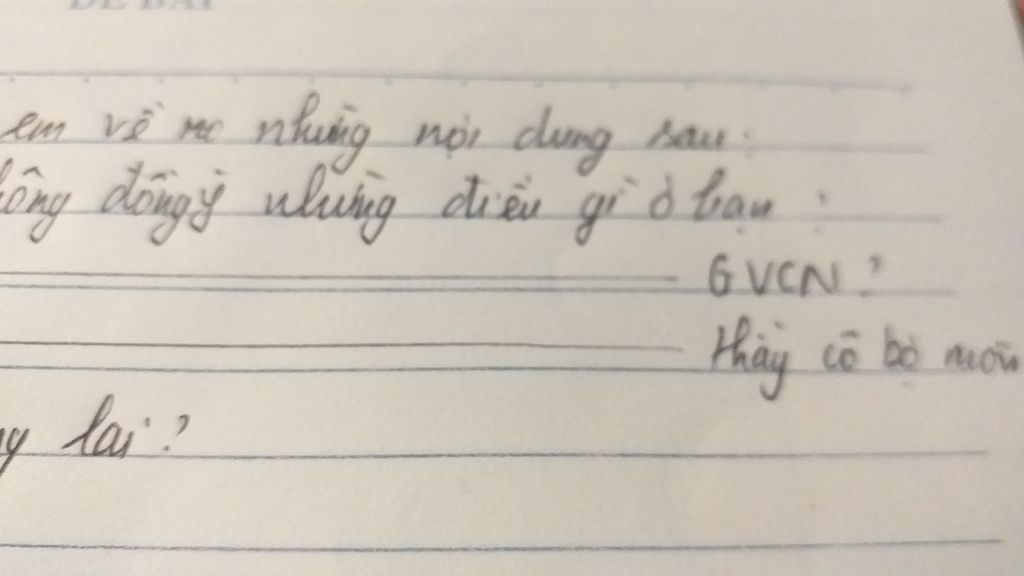 ĐỀ BÀI
em về những nội dung sau:
không đồng ý những điều gì ở bạn:
GVCN?
thầy cô bộ môn
lai?